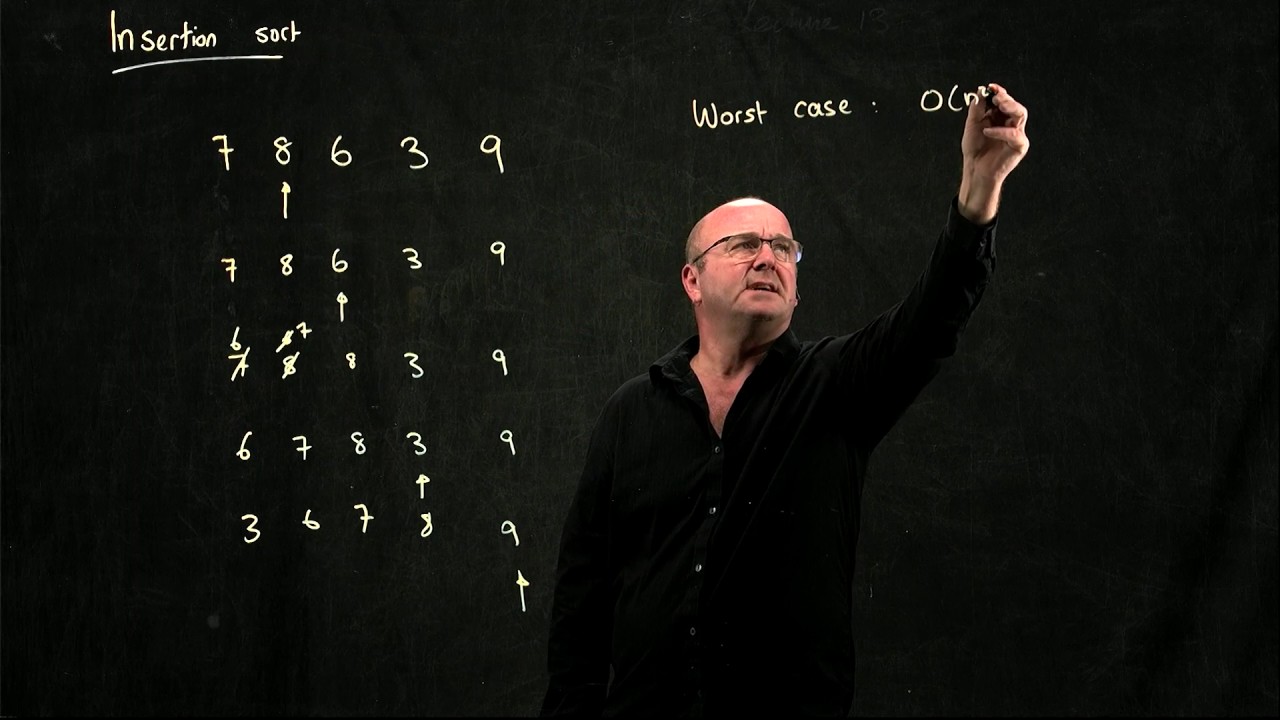 Lecture 13
Insertion sort
Worst case: O(n²
7 8 6 3 9
7 8 6 3 9
6 7
7 8 8 3 9
6 7 8 3 9
3 6 7 8 9